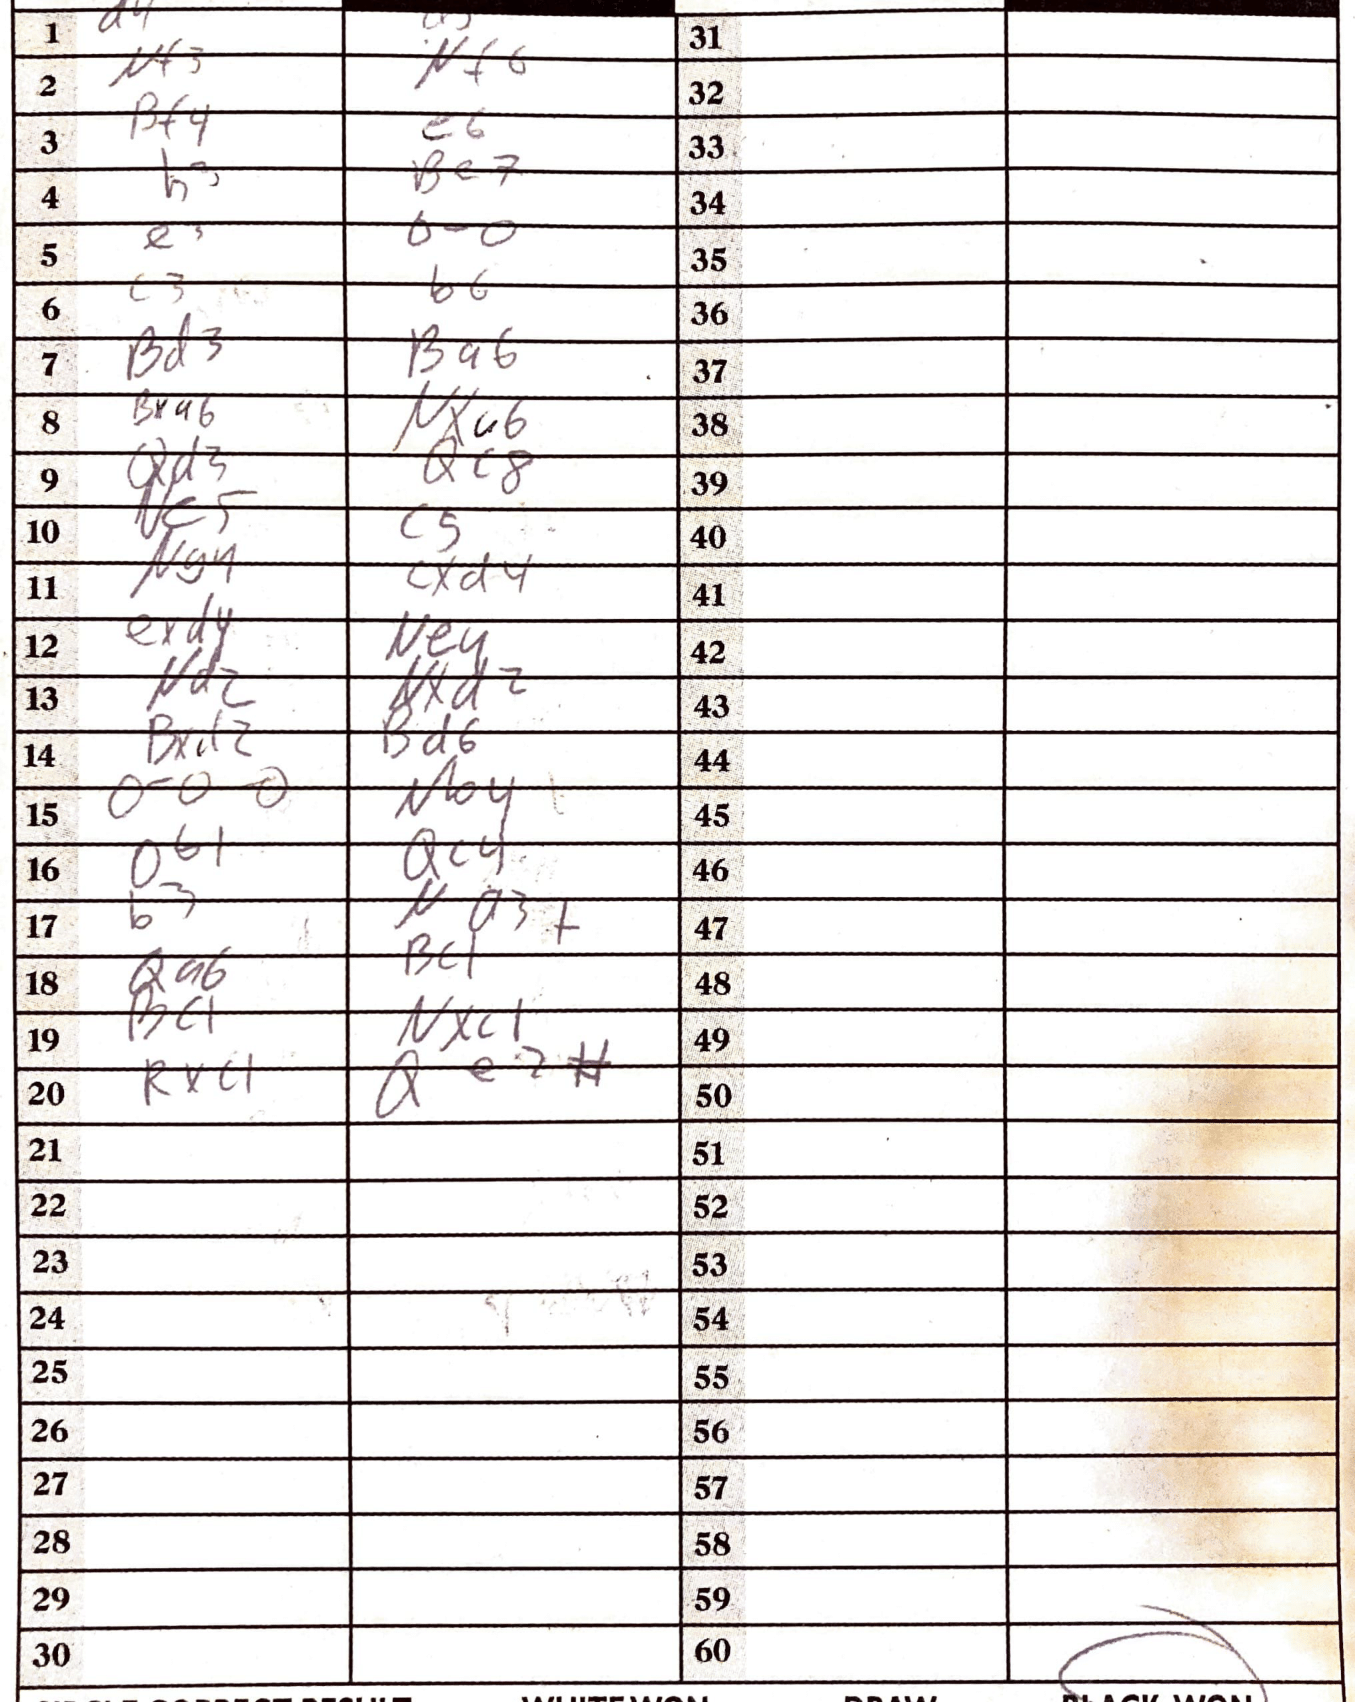 1 d4 d5 31
2 Nf3 Nf6 32
3 Bf4 e6 33
4 h3 Be7 34
5 e3 0-0 35
6 c3 b6 36
7 Bd3 Ba6 37
8 Bxa6 Nxa6 38
9 Qd3 Qc8 39
10 Ne5 c5 40
11 Ng4 cxd4 41
12 exd4 Ne4 42
13 Nd2 Nxd2 43
14 Bxd2 Bd6 44
15 0-0-0 Nb4 45
16 Qb1 Qc4 46
17 b3 Na3+ 47
18 Qa6 Bc1 48
19 Bc1 Nxc1 49
20 Rxc1 Qe2# 50
21 51
22 52
23 53
24 54
25 55
26 56
27 57
28 58
29 59
30 60
CIRCLE CORRECT RESULT WHITE WON DRAW BLACK WON